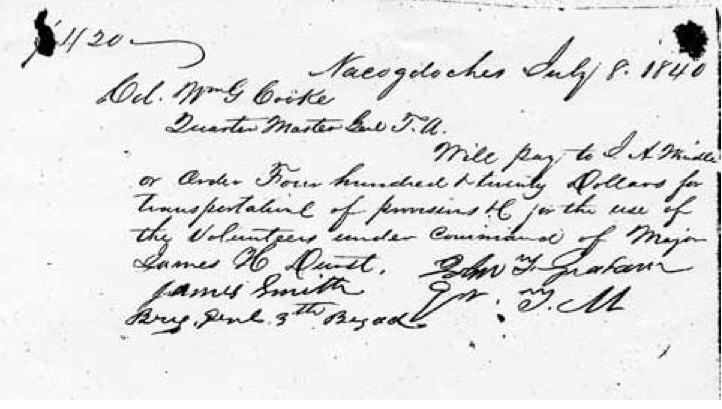 $420
Nacogdoches July 8. 1840
Col. Wm G Cooke
Quarter Master Genl T.A.
Will pay to J A
or Order Four hundred & twenty Dollars for
transportation of provisions &c for the use of
the Volunteers under command of Major
James H Durst. John Graham
James Smith Q. M
Brig. Genl. 3th Brigad